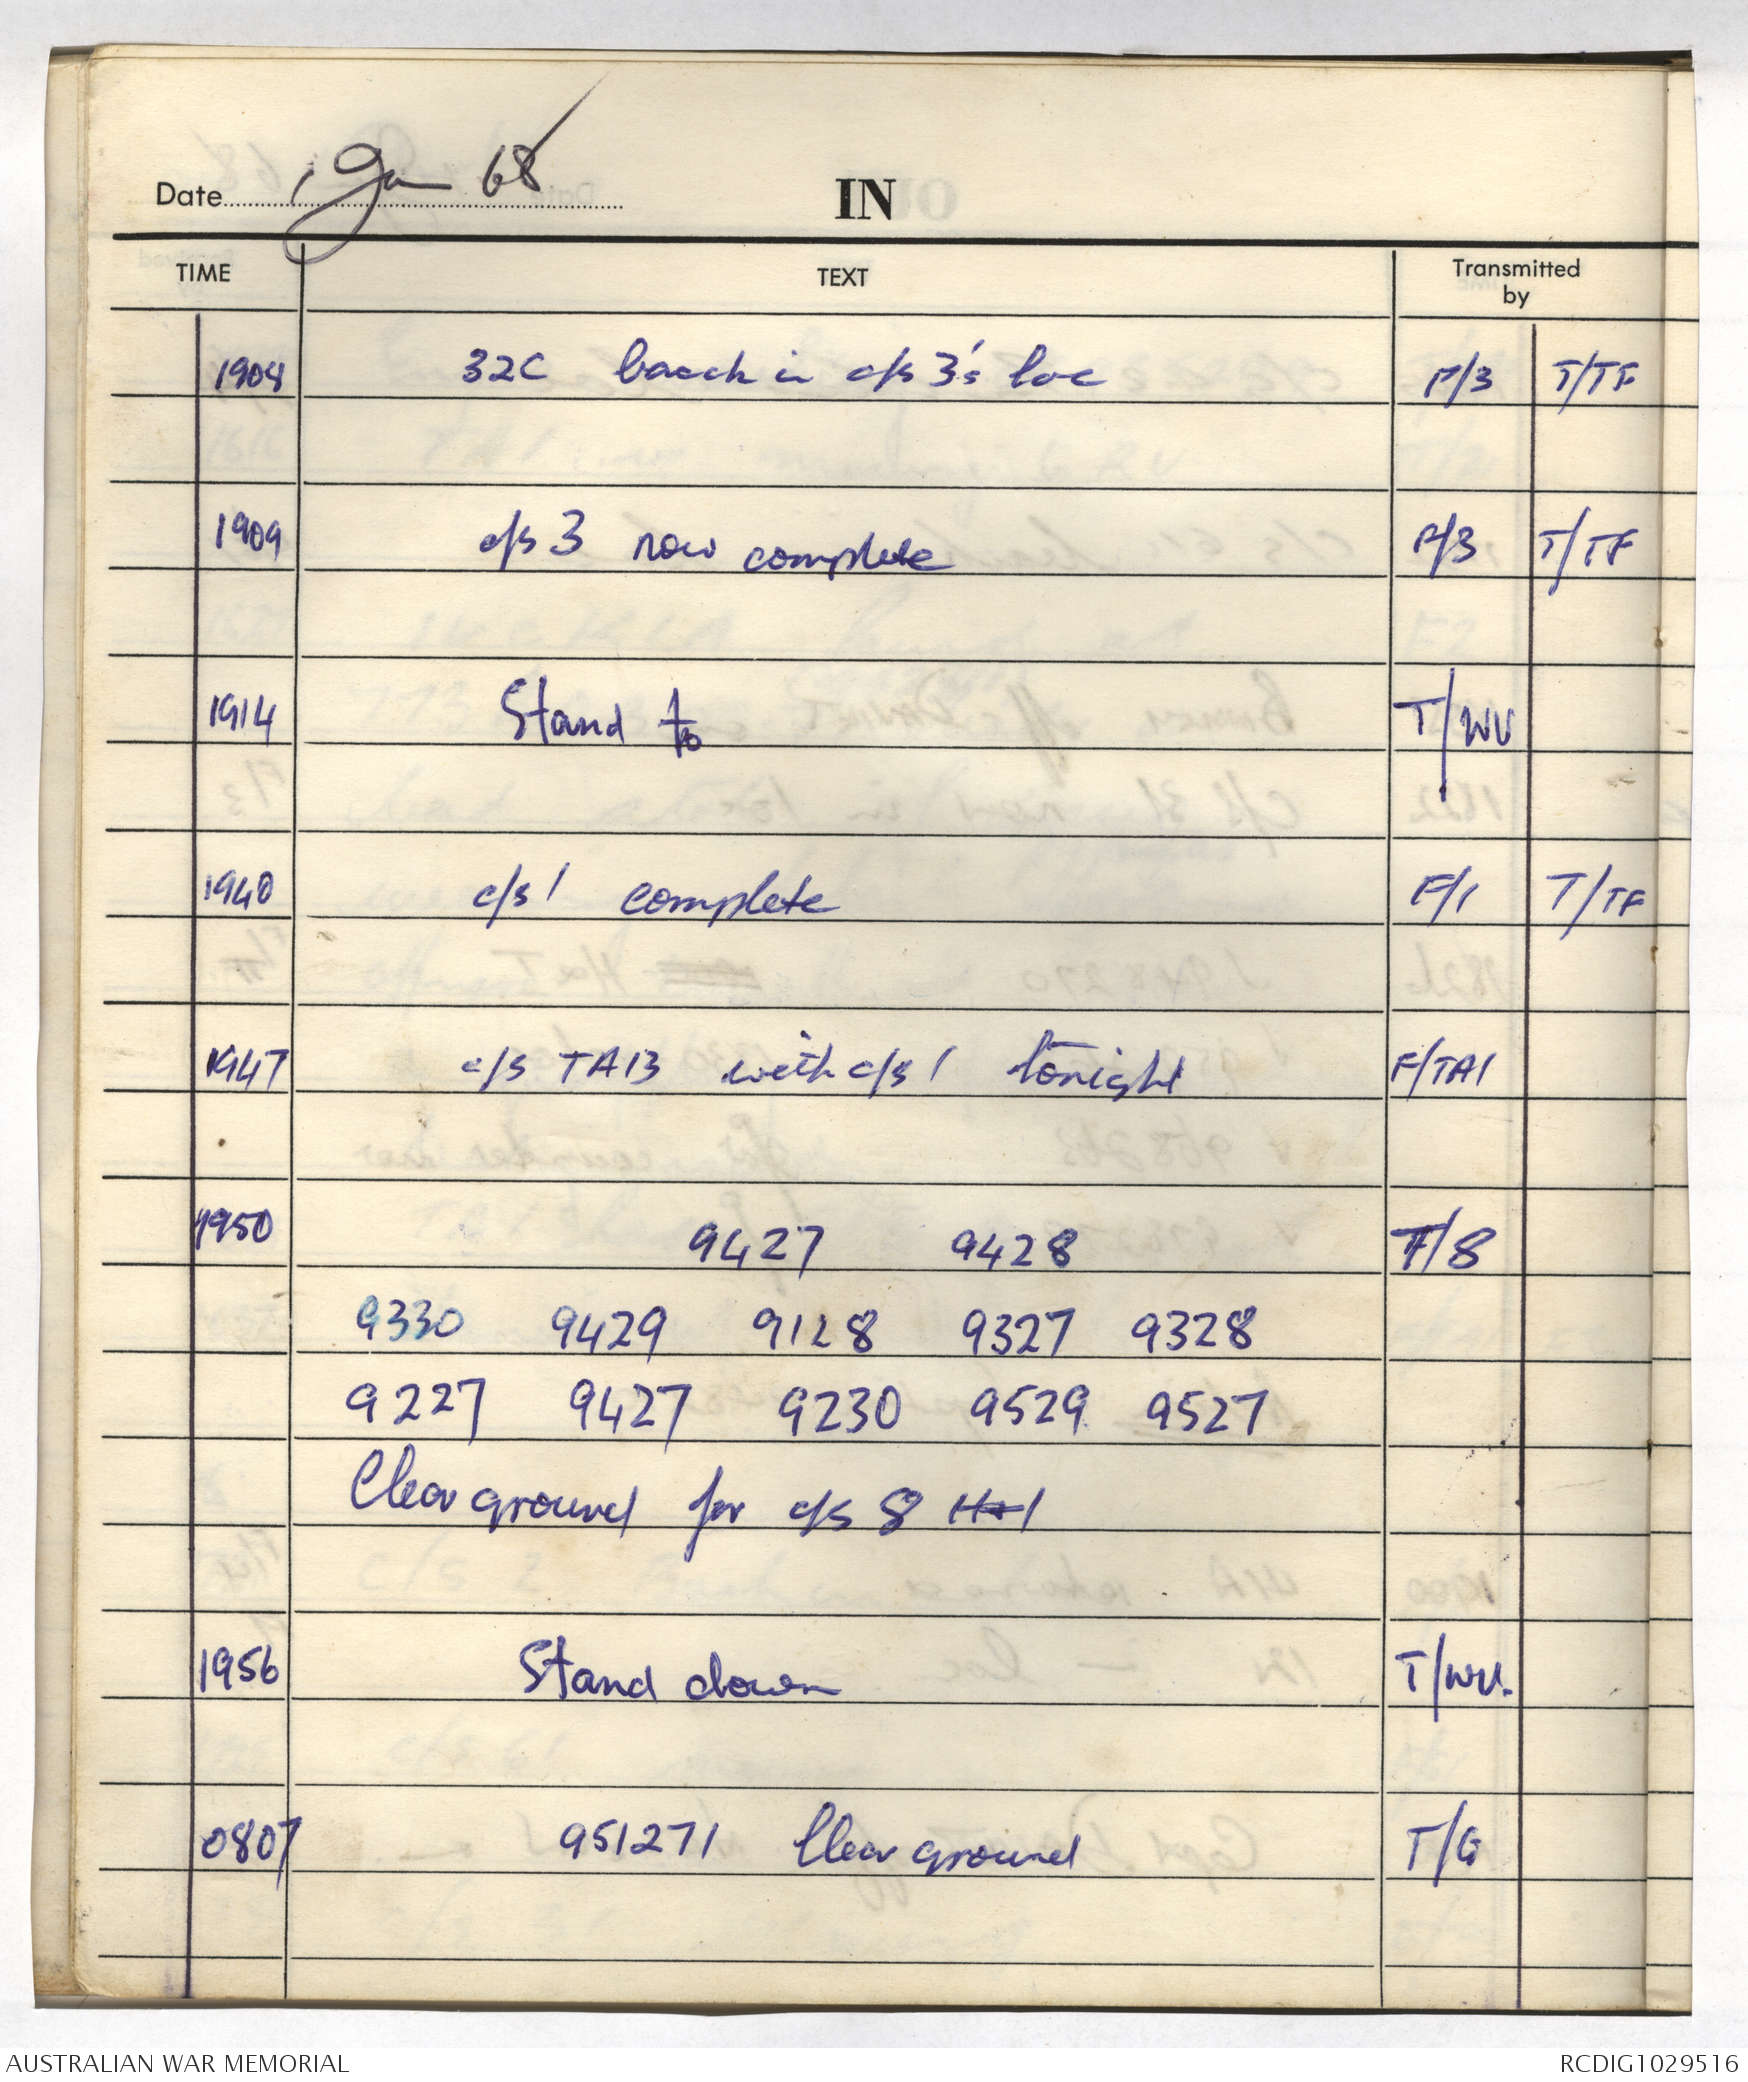 Date 1 Jan 68
IN
TIME TEXT Transmitted by
1904 32C baack in c/s 3's loc F/3 T/TF
1909 c/s 3 now complete F/3 T/TF
1914 Stand to T/WU
1940 c/s 1 complete F/1 T/TF
1947 c/s TA13 with c/s 1 tonight F/TA1
1950 9427 9428 F/8
9330 9429 9128 9327 9328
9227 9427 9230 9529 9527
Clear ground for c/s 8
1956 Stand down T/WU.
0807 951271 Clear ground T/G
AUSTRALIAN WAR MEMORIAL RCDIG1029516